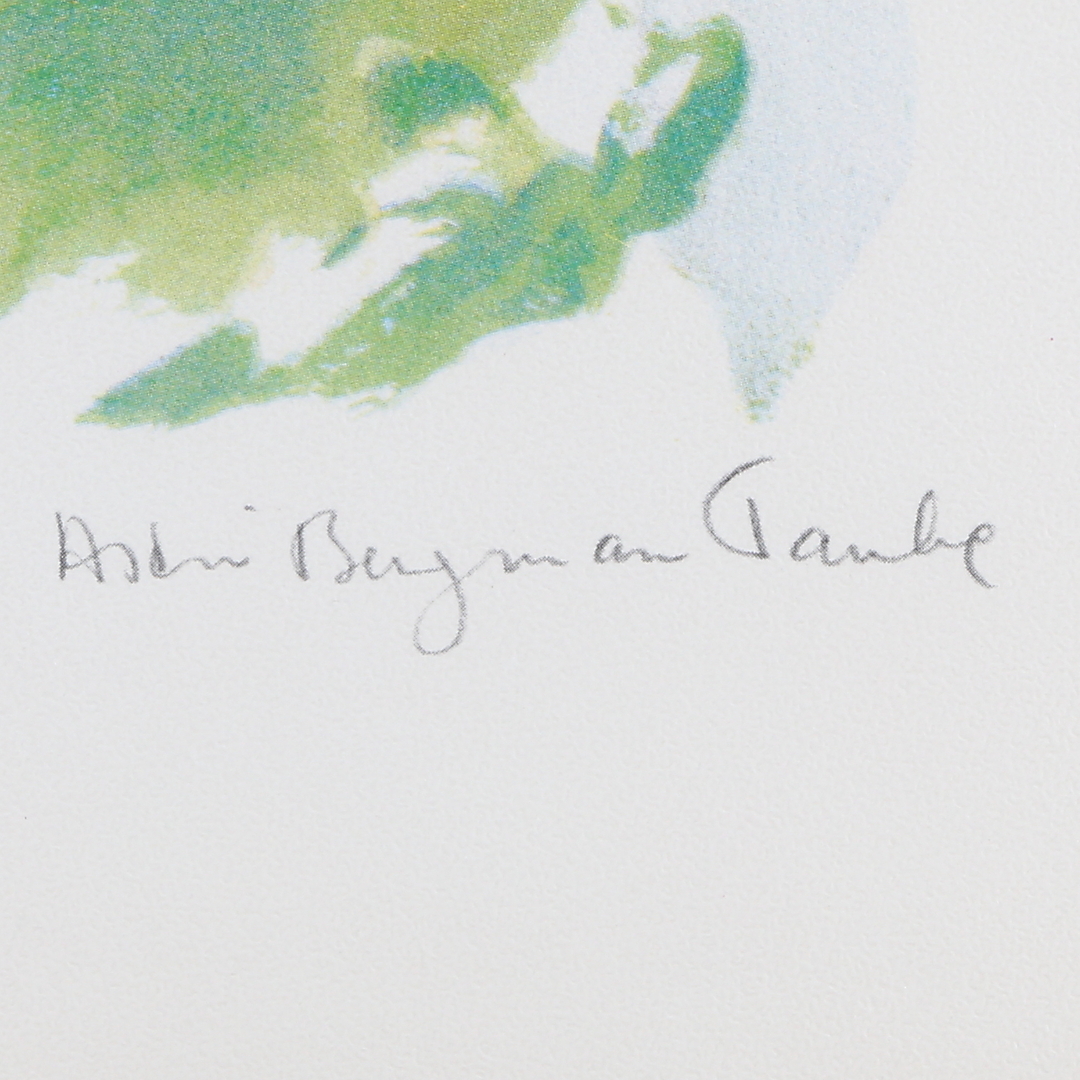 Astri Bergman Taube